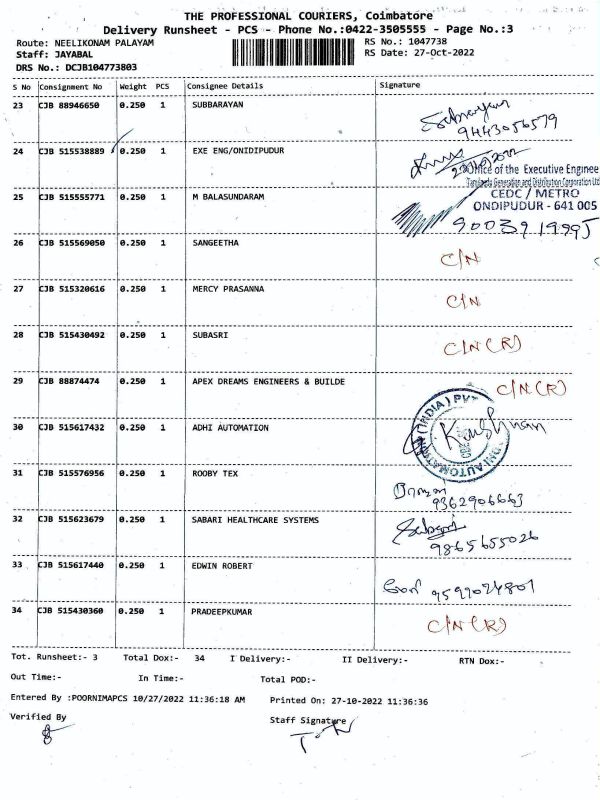 THE PROFESSIONAL COURIERS, Coimbatore
Delivery Runsheet - PCS - Phone No.:0422-3505555 - Page No.:3
Route: NEELIKONAM PALAYAM RS No.: 1047738
Staff: JAYABAL RS Date: 27-Oct-2022
DRS No.: DCJB104773803
S No Consignment No Weight PCS Consignee Details Signature
23 CJB 88946650 0.250 1 SUBBARAYAN
9443056579
24 CJB 515538889 0.250 1 EXE ENG/ONIDIPUDUR
Office of the Executive Enginee
Tamilnadu Generation and Distribution Corporation Ltd
25 CJB 515555771 0.250 1 M BALASUNDARAM CEDC / METRO
ONDIPUDUR - 641 005
26 CJB 515569050 0.250 1 SANGEETHA C/N
27 CJB 515320616 0.250 1 MERCY PRASANNA C/N
28 CJB 515430492 0.250 1 SUBASRI C/N (R)
29 CJB 88874474 0.250 1 APEX DREAMS ENGINEERS & BUILDE C/N (R)
30 CJB 515617432 0.250 1 ADHI AUTOMATION
31 CJB 515576956 0.250 1 ROOBY TEX
9362906663
32 CJB 515623679 0.250 1 SABARI HEALTHCARE SYSTEMS
9865655026
33 CJB 515617440 0.250 1 EDWIN ROBERT
34 CJB 515430360 0.250 1 PRADEEPKUMAR C/N (R)
Tot. Runsheet:- 3 Total Dox:- 34 I Delivery:- II Delivery:- RTN Dox:-
Out Time:- In Time:- Total POD:-
Entered By :POORNIMAPCS 10/27/2022 11:36:18 AM Printed On: 27-10-2022 11:36:36
Verified By Staff Signature